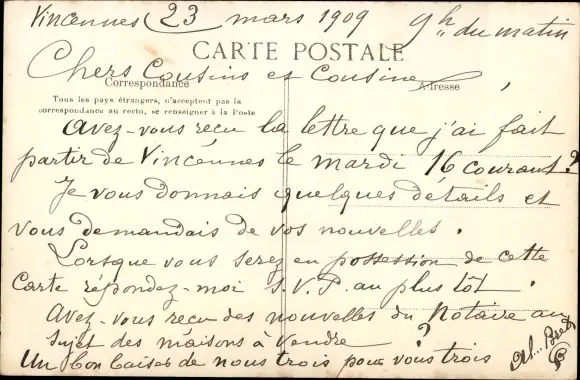 Vincennes 23 mars 1909 9h du matin
CARTE POSTALE
Chers Cousins et Cousine
Correspondance Adresse
Tous les pays étrangers, n'acceptent pas la
correspondance au recto, se renseigner à la Poste
Avez-vous reçu la lettre que j'ai fait
partir de Vincennes le mardi 16 courant ?
Je vous donnais quelques détails et
vous demandais de vos nouvelles.
Lorsque vous serez en possession de cette
Carte répondez-moi S.V.P. au plus tôt.
Avez-vous reçu des nouvelles du Notaire au
sujet des maisons à vendre ?
Un bon baiser de nous trois pour vous trois